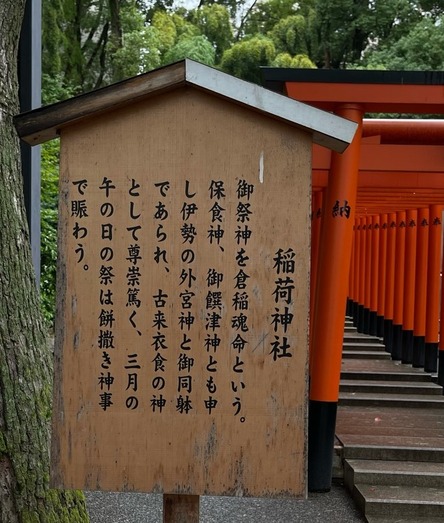 稲荷神社
御祭神を倉稲魂命という。
保食神、御饌津神とも申
し伊勢の外宮神と御同躰
であられ、古来衣食の神
として尊崇篤く、三月の
午の日の祭は餅撒き神事
で賑わう。
納